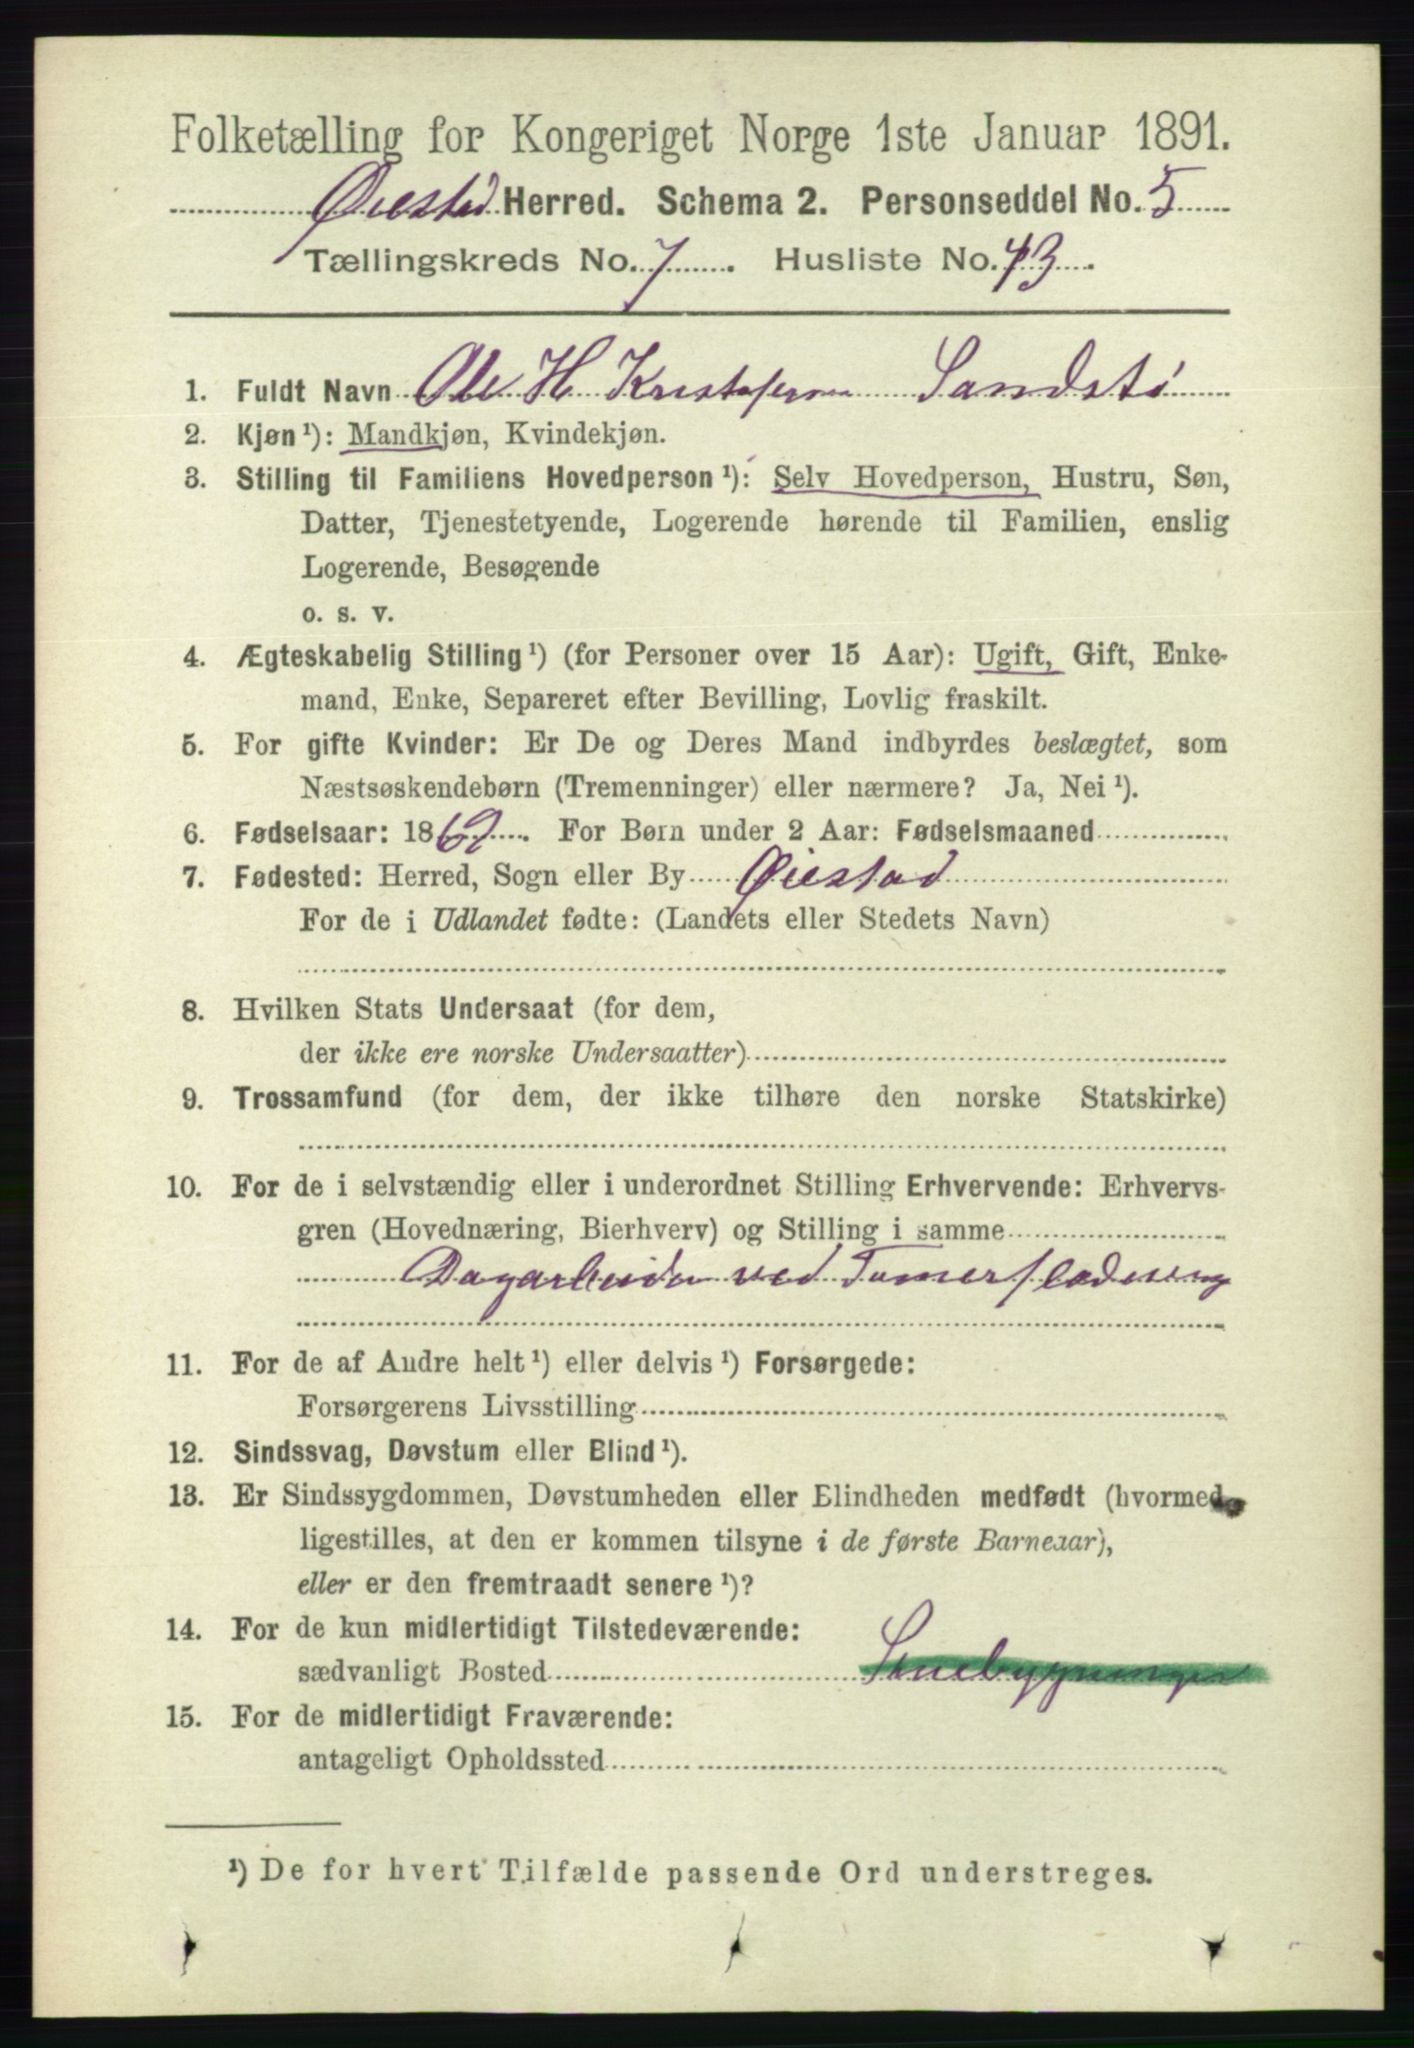 Folketælling for Kongeriget Norge 1ste Januar 1891.
Øiestad Herred. Schema 2. Personseddel No. 5
Tællingskreds No. 7. Husliste No. 43.
1. Fuldt Navn Ole H Kristofersen Sandstø
2. Kjøn¹): Mandkjøn, Kvindekjøn.
3. Stilling til Familiens Hovedperson¹): Selv Hovedperson, Hustru, Søn,
Datter, Tjenestetyende, Logerende hørende til Familien, enslig
Logerende, Besøgende
o. s. v.
4. Ægteskabelig Stilling¹) (for Personer over 15 Aar): Ugift, Gift, Enke-
mand, Enke, Separeret efter Bevilling, Lovlig fraskilt.
5. For gifte Kvinder: Er De og Deres Mand indbyrdes beslægtet, som
Næstsøskendebørn (Tremenninger) eller nærmere? Ja, Nei¹).
6. Fødselsaar: 1869. For Børn under 2 Aar: Fødselsmaaned
7. Fødested: Herred, Sogn eller By Øiestad
For de i Udlandet fødte: (Landets eller Stedets Navn)
8. Hvilken Stats Undersaat (for dem,
der ikke ere norske Undersaatter)
9. Trossamfund (for dem, der ikke tilhøre den norske Statskirke)
10. For de i selvstændig eller i underordnet Stilling Erhvervende: Erhvervs-
gren (Hovednæring, Bierhverv) og Stilling i samme
Dagarbeider ved
11. For de af Andre helt¹) eller delvis¹) Forsørgede:
Forsørgerens Livsstilling
12. Sindssvag, Døvstum eller Blind¹).
13. Er Sindssygdommen, Døvstumheden eller Blindheden medfødt (hvormed
ligestilles, at den er kommen tilsyne i de første Barneaar),
eller er den fremtraadt senere¹)?
14. For de kun midlertidigt Tilstedeværende:
sædvanligt Bosted
15. For de midlertidigt Fraværende:
antageligt Opholdssted
¹) De for hvert Tilfælde passende Ord understreges.